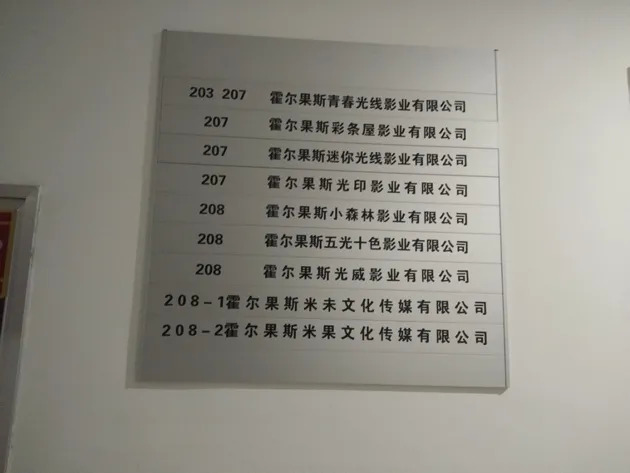 203 207 霍尔果斯青春光线影业有限公司
207 霍尔果斯彩条屋影业有限公司
207 霍尔果斯迷你光线影业有限公司
207 霍尔果斯光印影业有限公司
208 霍尔果斯小森林影业有限公司
208 霍尔果斯五光十色影业有限公司
208 霍尔果斯光威影业有限公司
208-1霍尔果斯米未文化传媒有限公司
208-2霍尔果斯米果文化传媒有限公司